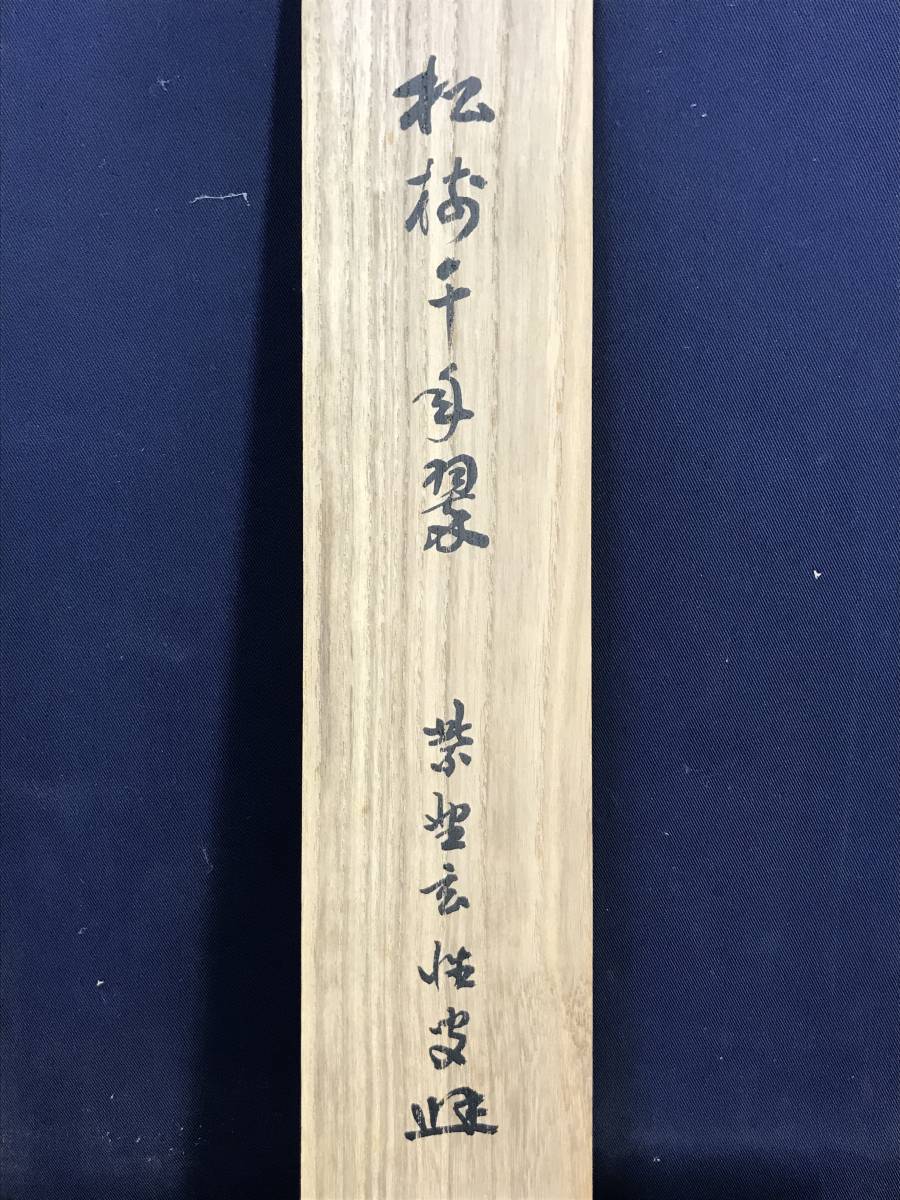 松樹千年翠 紫野玄性叟